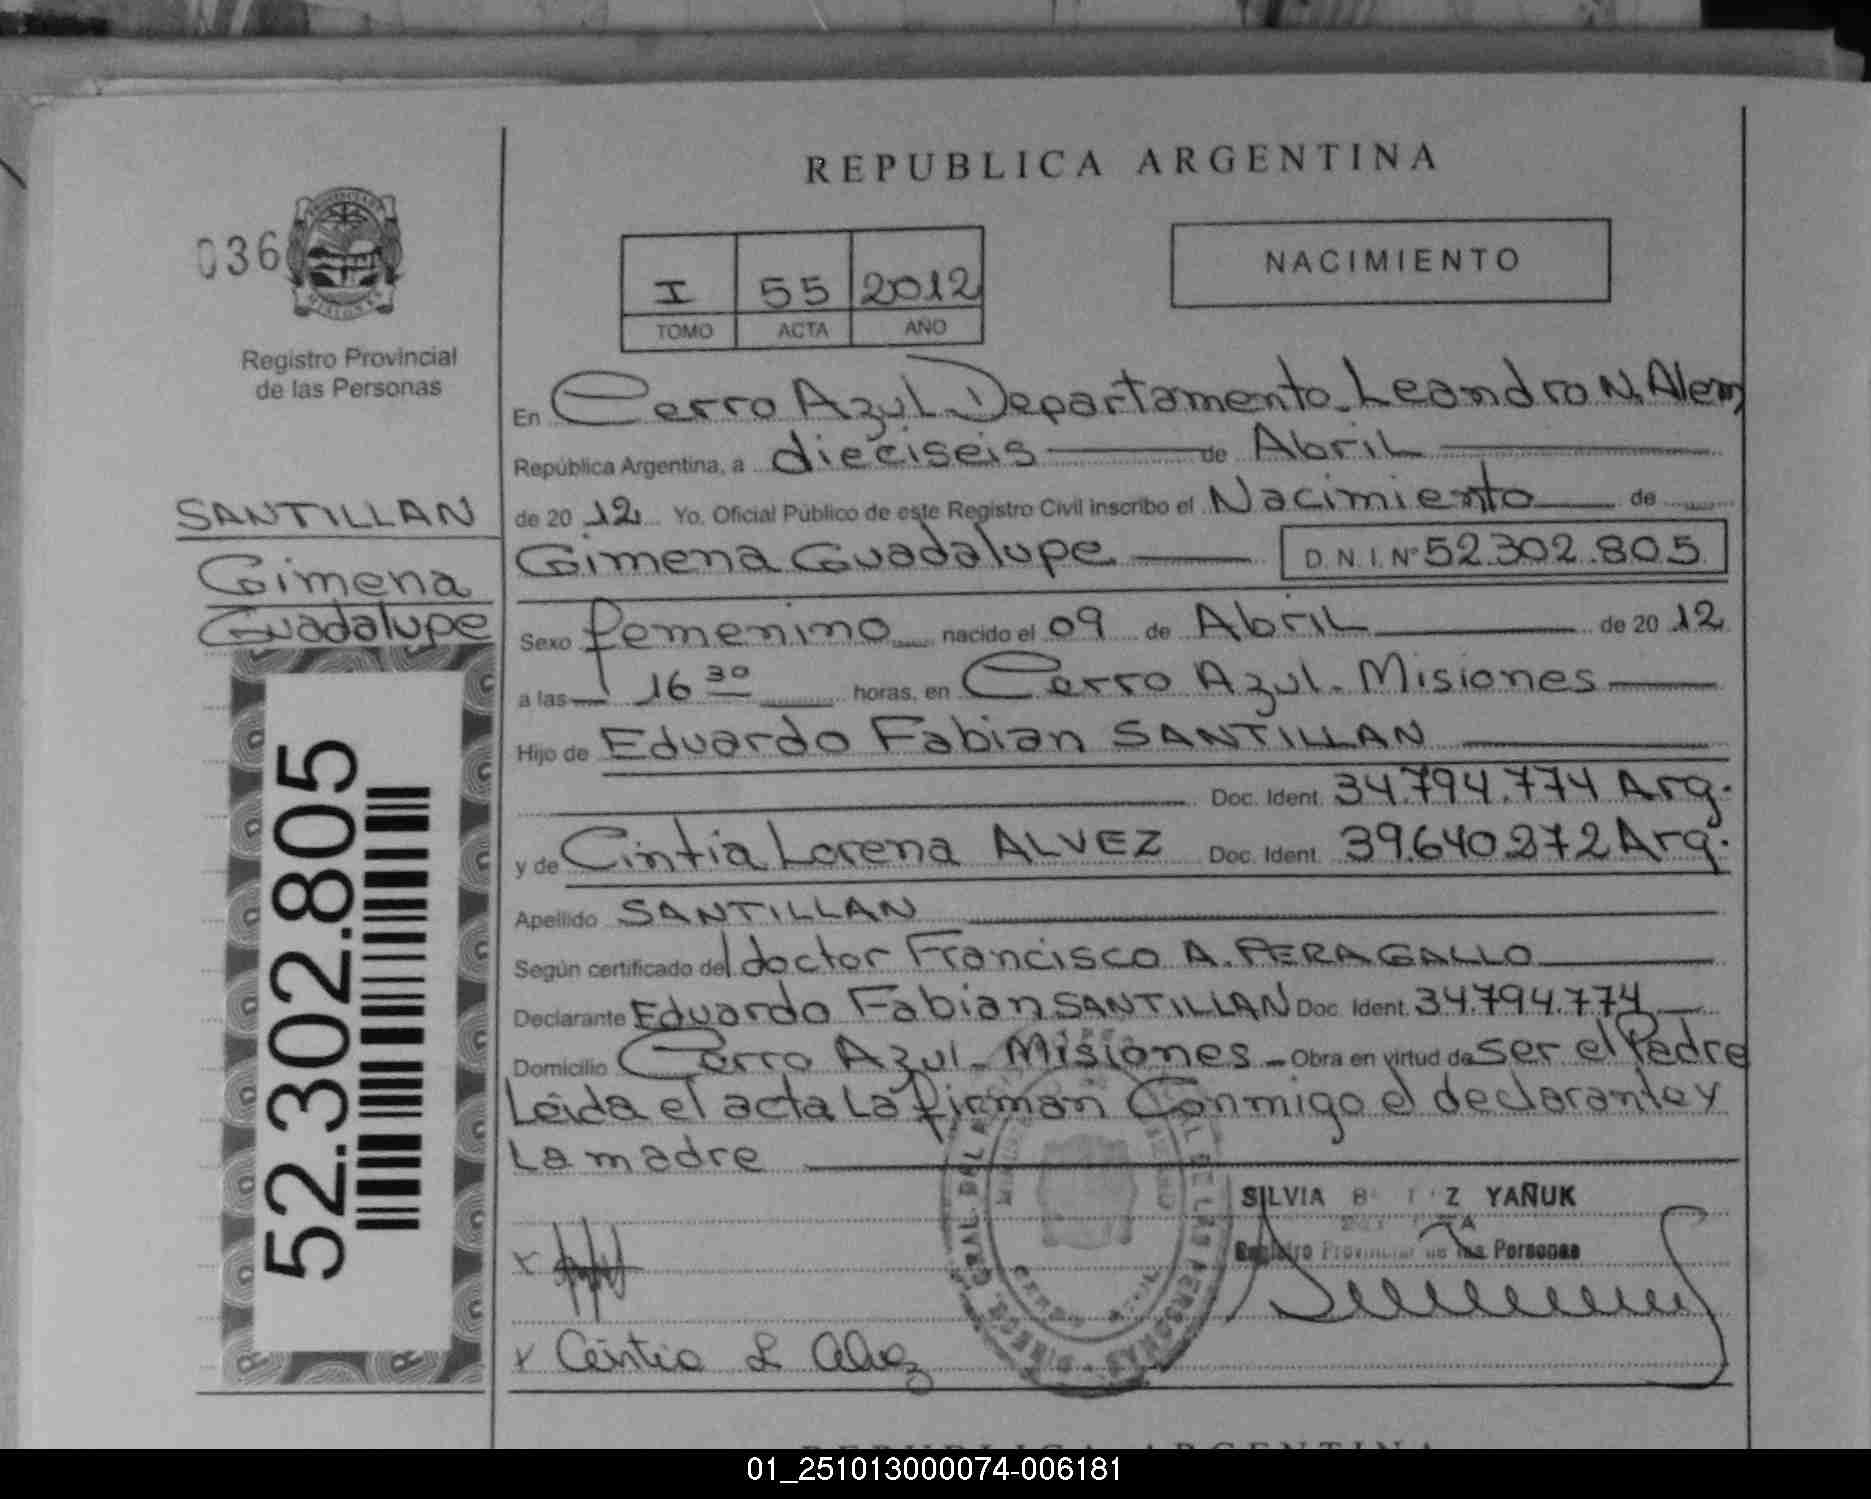 REPUBLICA ARGENTINA
036
NACIMIENTO
I 55 2012
TOMO ACTA AÑO
Registro Provincial
de las Personas
En Cerro Azul Departamento Leandro N. Alem
República Argentina, a dieciseis de Abril
de 20 12 Yo, Oficial Público de este Registro Civil inscribo el Nacimiento de
SANTILLAN
Gimena
Guadalupe
Gimena Guadalupe D.N.I. Nº 52.302.805
Sexo femenino nacido el 09 de Abril de 20 12
a las 16 30 horas, en Cerro Azul. Misiones
Hijo de Eduardo Fabian SANTILLAN
Doc. Ident. 34.794.774 Arg.
y de Cintia Lorena ALVEZ Doc. Ident. 39.640.272 Arg.
Apellido SANTILLAN
Según certificado del doctor Francisco A. PERAGALLO
Declarante Eduardo Fabian SANTILLAN Doc. Ident. 34.794.774
Domicilio Cerro Azul - Misiones - Obra en virtud de ser el Padre
Leida el acta La firman Conmigo el declarante y
La madre
52.302.805
SILVIA YAÑUK
Registro Provincial de las Personas
x Cintia L Alvez
CERRO AZUL
REPUBLICA ARGENTINA
01_251013000074-006181